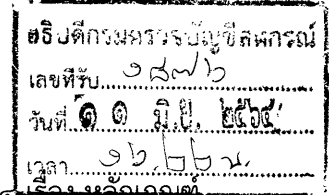 อธิบดีกรมตรวจบัญชีสหกรณ์
เลขที่รับ ๑๘๗๖
วันที่ ๑ ๑ มิ.ย. ๒๕๖๔
เวลา ๑๖.๒๒ น.
เรื่อง หลักเกณฑ์